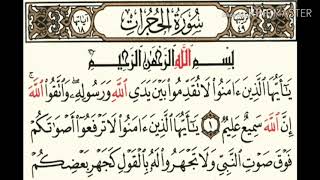 سُورَةُ الحُجُرَاتِ
بِسْمِ اللَّهِ الرَّحْمَٰنِ الرَّحِيمِ
يَٰٓأَيُّهَا الَّذِينَ ءَامَنُوا لَا تُقَدِّمُوا بَيْنَ يَدَيِ اللَّهِ وَرَسُولِهِ وَاتَّقُوا اللَّهَ
إِنَّ اللَّهَ سَمِيعٌ عَلِيمٌ ١ يَٰٓأَيُّهَا الَّذِينَ ءَامَنُوا لَا تَرْفَعُوا أَصْوَاتَكُمْ
فَوْقَ صَوْتِ النَّبِيِّ وَلَا تَجْهَرُوا لَهُ بِالْقَوْلِ كَجَهْرِ بَعْضِكُمْ